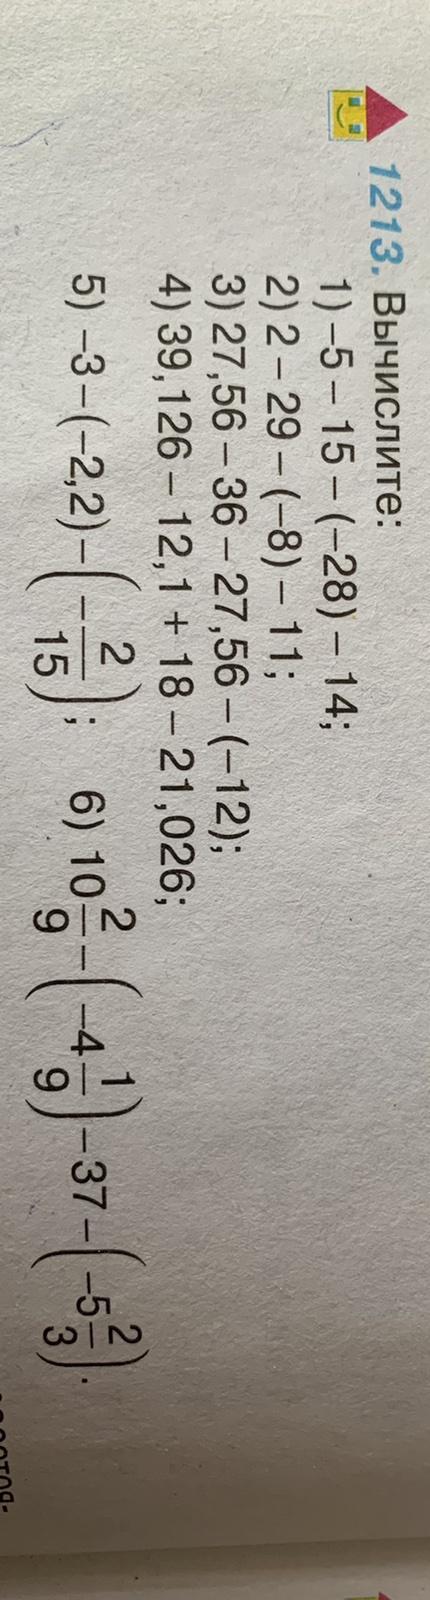 1213. Вычислите:
1) –5 – 15 – (–28) – 14;
2) 2 – 29 – (–8) – 11;
3) 27,56 – 36 – 27,56 – (–12);
4) 39,126 – 12,1 + 18 – 21,026;
5) –3 – (–2,2) – (–2/15); 6) 10 2/9 – (–4 1/9) – 37 – (–5 2/3).